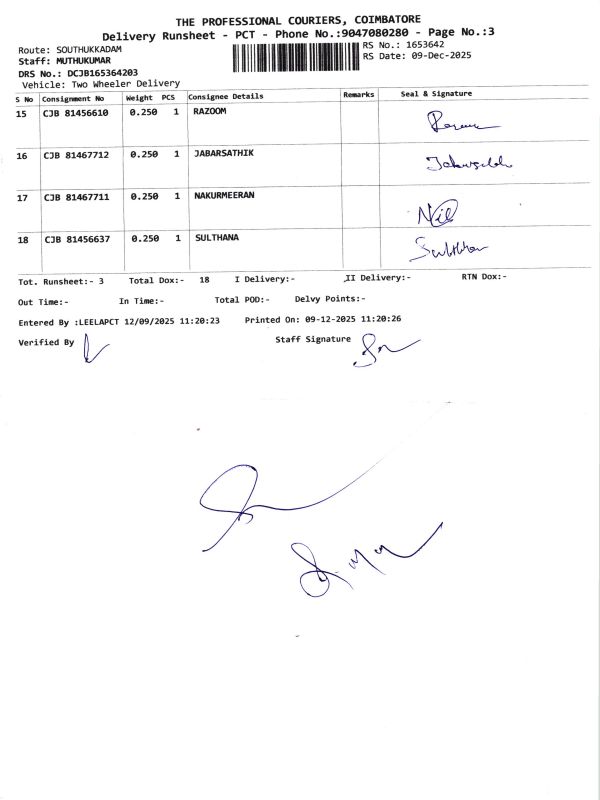 THE PROFESSIONAL COURIERS, COIMBATORE
Delivery Runsheet - PCT - Phone No.:9047080280 - Page No.:3
Route: SOUTHUKKADAM
RS No.: 1653642
Staff: MUTHUKUMAR
RS Date: 09-Dec-2025
DRS No.: DCJB165364203
Vehicle: Two Wheeler Delivery
S No Consignment No Weight PCS Consignee Details Remarks Seal & Signature
15 CJB 81456610 0.250 1 RAZOOM
16 CJB 81467712 0.250 1 JABARSATHIK
17 CJB 81467711 0.250 1 NAKURMEERAN
18 CJB 81456637 0.250 1 SULTHANA
Tot. Runsheet:- 3 Total Dox:- 18 I Delivery:- II Delivery:- RTN Dox:-
Out Time:- In Time:- Total POD:- Delvy Points:-
Entered By :LEELAPCT 12/09/2025 11:20:23 Printed On: 09-12-2025 11:20:26
Verified By Staff Signature